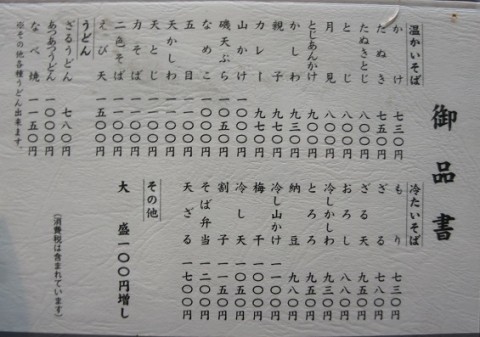 御品書
温かいそば
かけ 七三〇円
たぬき 七五〇円
たぬきとじ 八〇〇円
とじ 八〇〇円
月見 八〇〇円
とじあんかけ 九〇〇円
かしわ 九三〇円
親子 九七〇円
カレー 九七〇円
山かけ 一〇〇〇円
磯天ぷら 一〇五〇円
なめこ 一〇〇〇円
五目
天かしわ
天とじ
力そば
二色そば
えび天 一五〇〇円
うどん
ざるうどん 七八〇円
あつあつうどん 一〇〇〇円
なべ焼 一一五〇円
※その他各種うどん出来ます。
冷たいそば
もり 七三〇円
ざる 七八〇円
ざる天 九五〇円
おろし 八八〇円
冷しかしわ 九三〇円
とろろ 九五〇円
納豆 九八〇円
冷し山かけ 一一〇〇円
梅干
冷し天
割子 一一五〇円
そば弁当 一二〇〇円
天ざる 一七〇〇円
その他
大盛 一〇〇円増し
〔消費税は含まれています〕